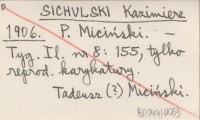 SICHULSKI Kazimierz
1906. P. Miciński. —
Tyg. Il. nr 8: 155, tylko
reprod. karykatury.
Tadeusz (?) Miciński.